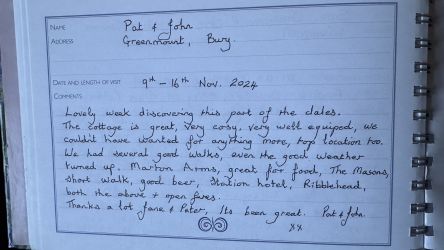 NAME Pat & John
ADDRESS Greenmount, Bury.
DATE AND LENGTH OF VISIT 9th – 16th Nov. 2024
COMMENTS
Lovely week discovering this part of the dales.
The cottage is great, very cosy, very well equiped, we
couldn't have wanted for anything more, top location too.
We had several good walks, even the good weather
turned up. Marton Arms, great for food, The Masons,
short walk, good beer, Station hotel, Ribblehead,
both the above + open fires.
Thanks a lot Jane & Peter, Its been great. Pat & John.
xx